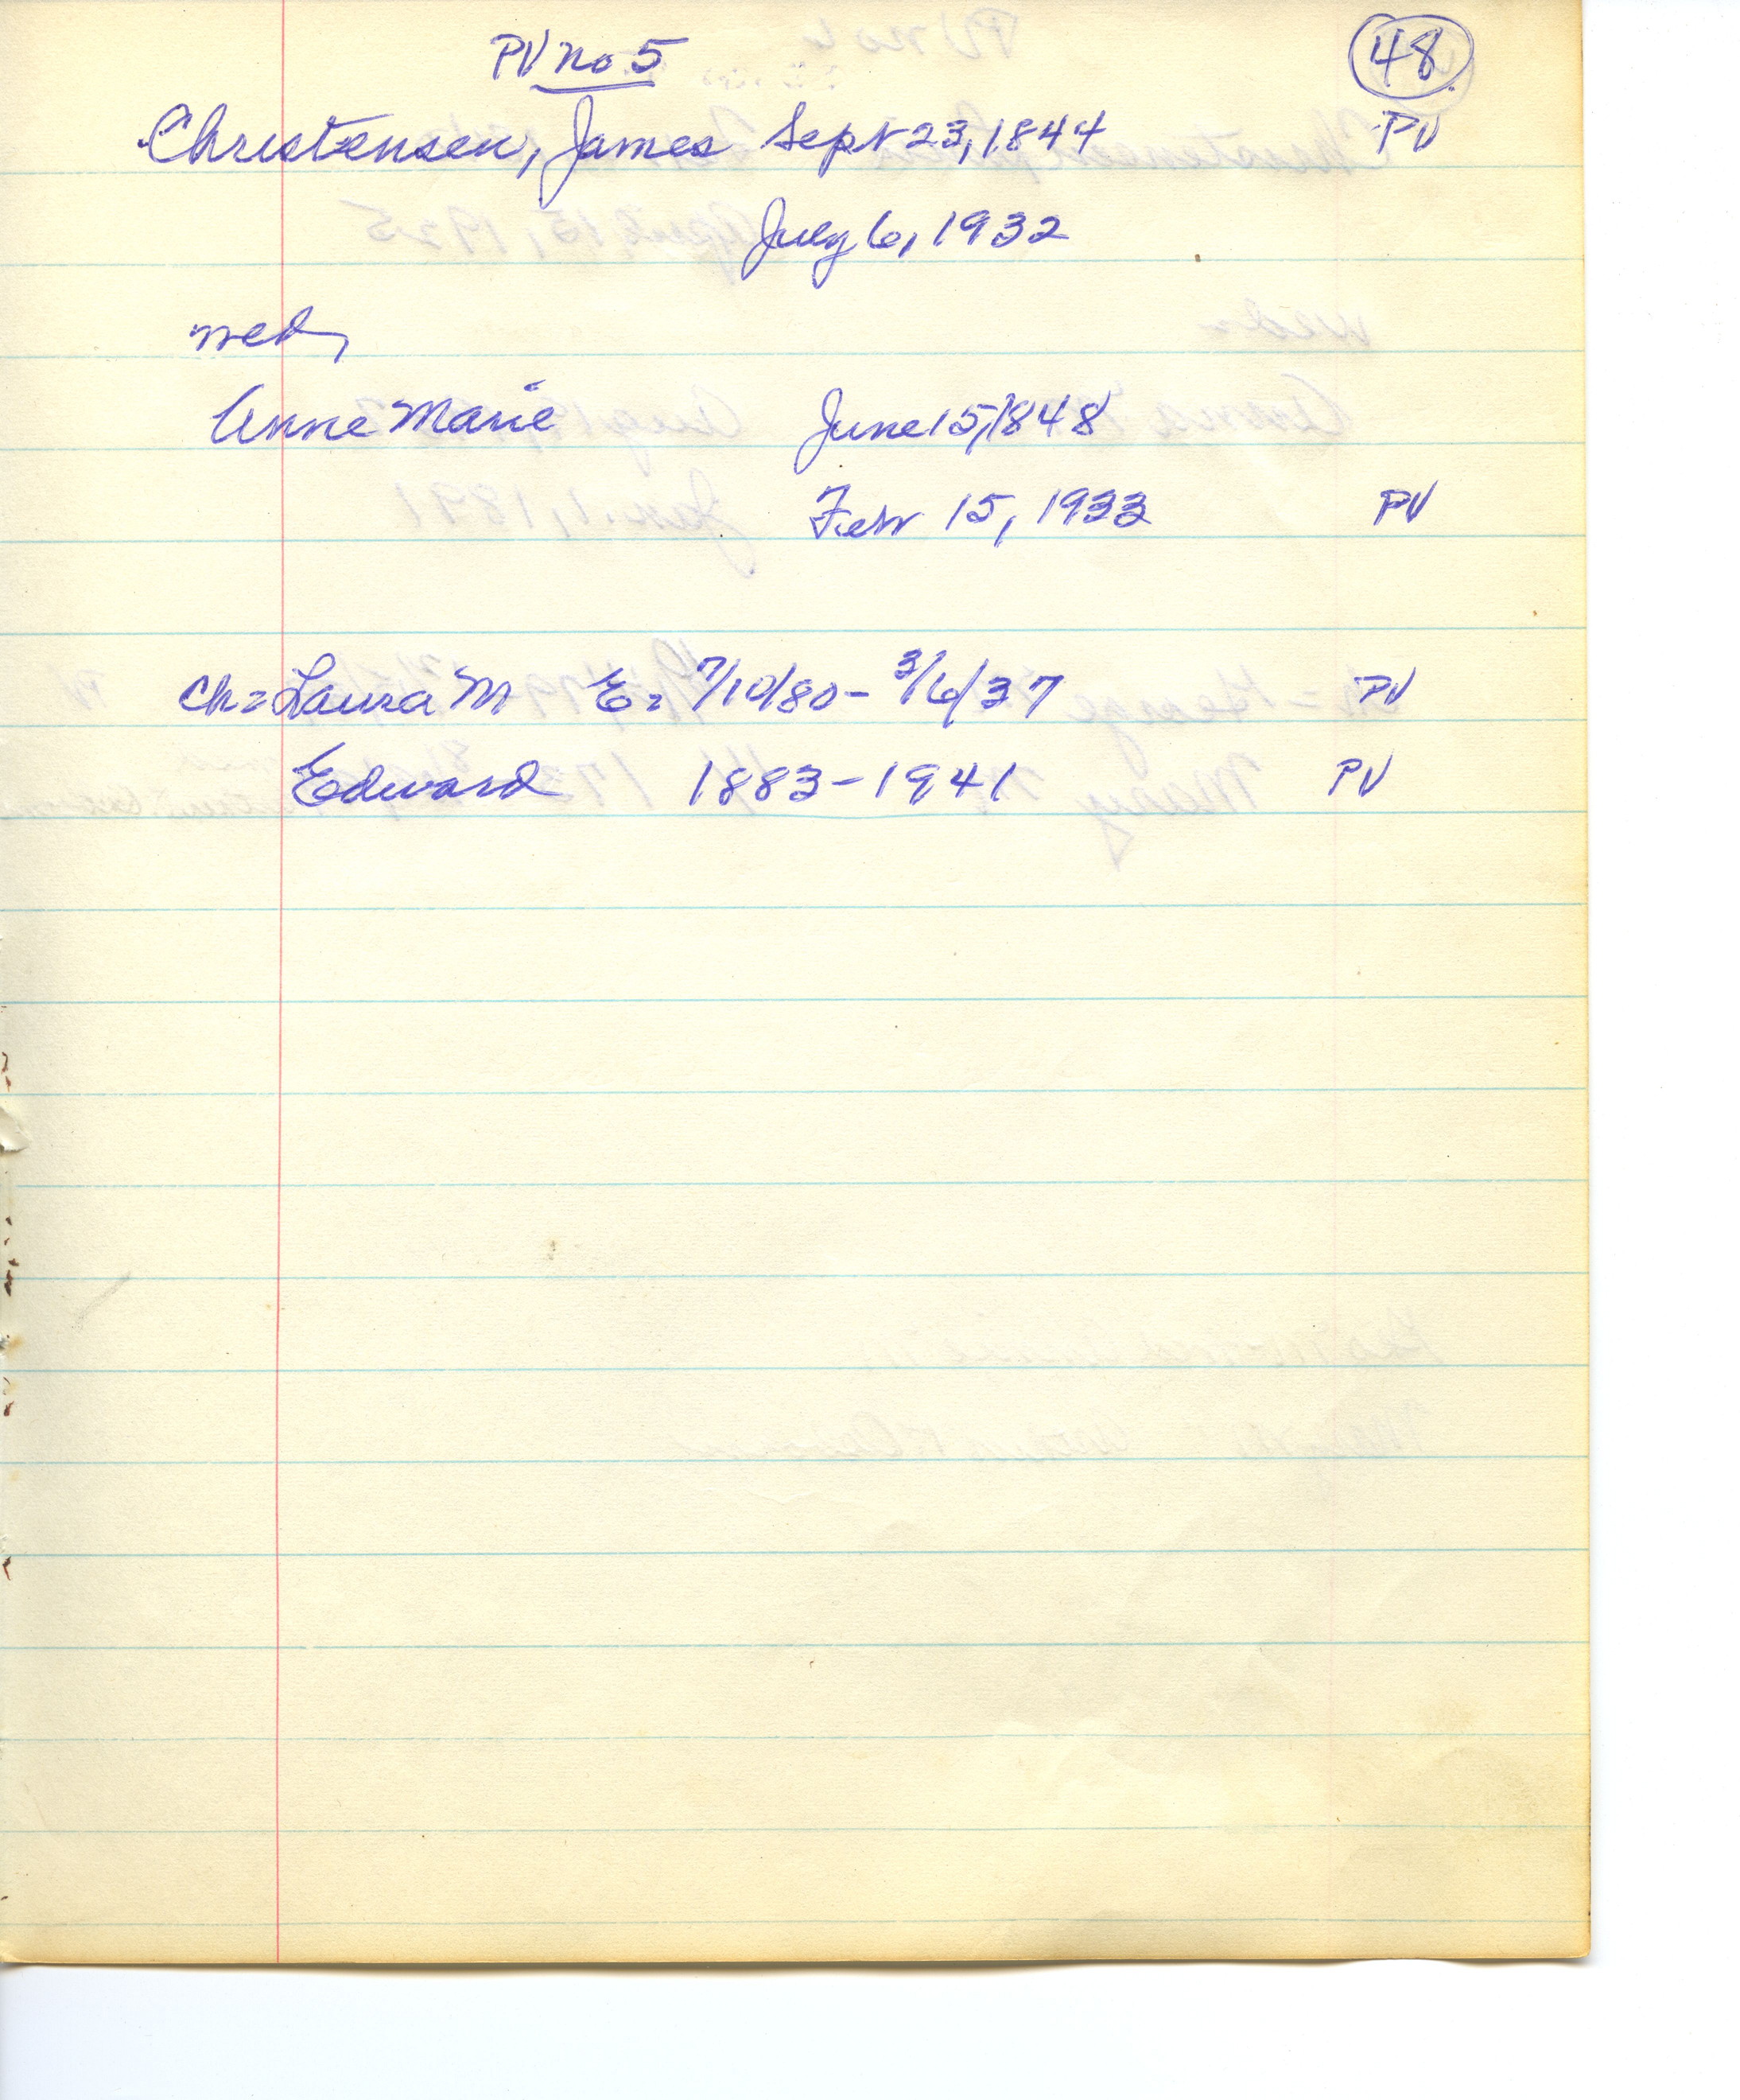 PV no 5 48
Christensen, James Sept 23, 1844 PV
July 6, 1932
wed,
Anne Marie June 15, 1848
Febr 15, 1933 PV
Ch = Laura M E = 7/10/80 - 3/6/37 PV
Edward 1883 - 1941 PV